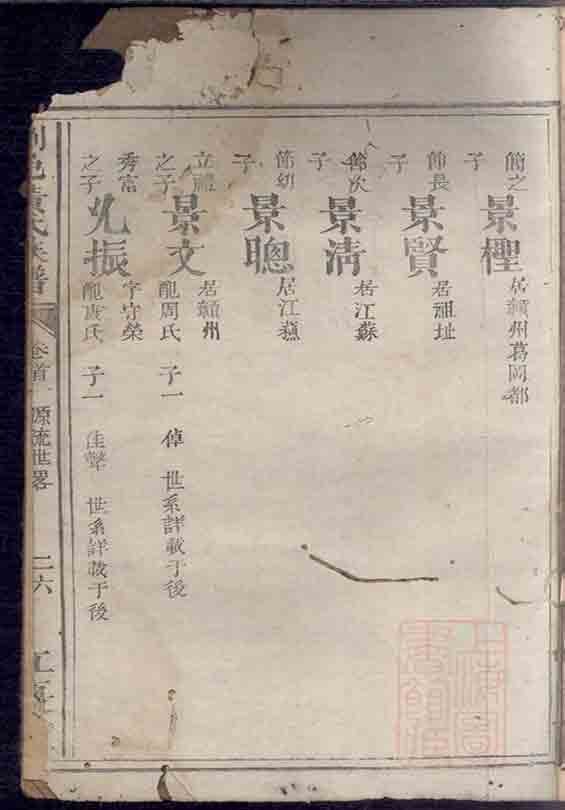 簡之子 景檉 居贛州葛岡都
節長子 景賢 居祖址
節次子 景清 居江蘇
節幼子 景聰 居江蘇
立禮之子 景文 居贛州 配周氏 子一 倬 世系詳載于後
秀富之子 允振 字守榮 配唐氏 子一 佳聲 世系詳載于後
黃氏族譜 卷首 源流世畧 二六 江夏
上海圖書館